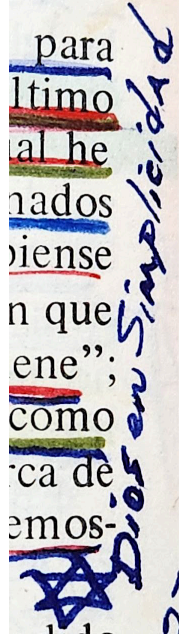 para
ltimo
ual he
nados
piense
n que
ene”;
como
rca de
emos-
Dios en Simplicidad